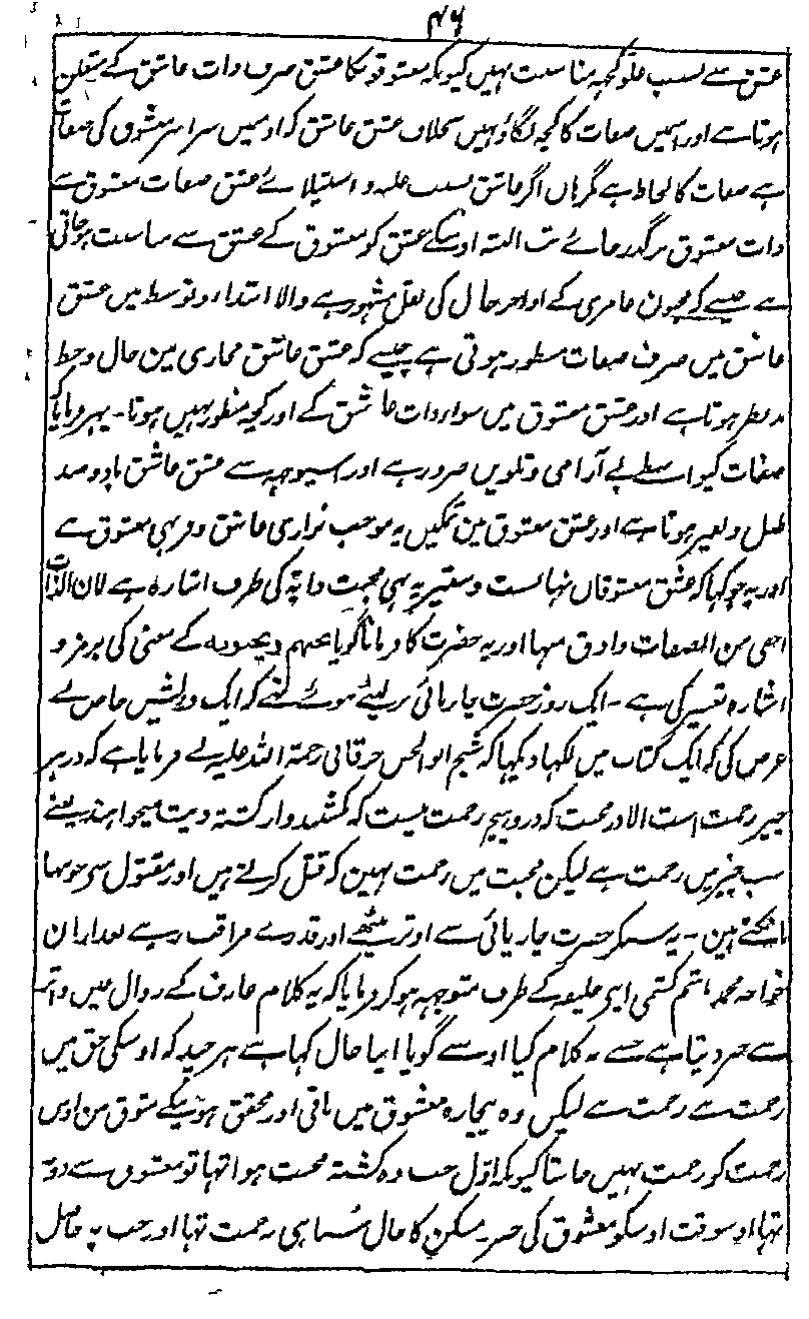 ۴۶
عشق سے نسبت علو کچہ مناسبت نہیں کیونکہ معشوقونکا عشق صرف ذات عاشق کے متعلق
ہوتا ہے اور اسمیں صفات کا کچہ لگاؤ نہیں بخلاف عشق عاشق کہ اوسمیں سراسر معشوق کی صفات
ہے صفات کا لحاظ ہے مگر ہاں اگر عاشق بسبب غلبہ و استیلائے عشق صفات معشوق سے
ذات معشوق پر گذر جائے تب البتہ اوسکے عشق کو معشوق کے عشق سے مناسبت ہوجاتی
ہے جیسے کہ مجنون عامری کے اواخر حال کی نقل مشہور ہے والا ابتداء و توسط میں عشق
عاشق میں صرف صفات منظور ہوتی ہے جیسے کہ عشق عاشق مجازی میں خال و خط
مدنظر ہوتا ہے اور عشق معشوق میں سوائے ذات عاشق کے اور کچہ منظور نہیں ہوتا۔ پہر فرمایا کہ
صفات کیواسطے بے آرامی و تلوین ضرور ہے اور اسیوجہہ سے عشق عاشق باد و صد
طبل و نفیر ہوتا ہے اور عشق معشوق میں تمکین یہ موجب نزاری عاشق و فربہی معشوق ہے
اور یہ جو کہا کہ عشق معشوقاں نہانست و ستیر یہ بہی محبت ذاتیہ کی طرف اشارہ ہے لان الذات
اخفی من الصفات وادق منہا اور یہ حضرت کا فرمانا گویا یحبہم ویحبونہ کے معنی کی برمز و
اشارہ تفسیر کی ہے۔ ایک روز حضرت چارپائی پر لیٹے ہوئے تہے کہ ایک درویش خاص نے
عرض کی کہ ایک کتاب میں لکہا دیکہا کہ شیخ ابو الحسن خرقانی رحمۃ اللہ علیہ نے فرمایا ہے کہ در ہر
چیز رحمت است الا در محبت کہ درو ہیچ رحمت نیست کہ کشند و از کشتہ دیت میخواہند یعنے
سب چیز میں رحمت ہے لیکن محبت میں رحمت نہیں کہ قتل کرتے ہیں اور مقتول سے خونبہا
مانگتے ہین۔ یہ سنکر حضرت چارپائی سے اوتر بیٹہے اور قدرے مراقب رہے بعد ازان
خواجہ محمد ہاشم کشمی اپنے خلیفہ کے طرف متوجہ ہو کر فرمایا کہ یہ کلام عارف کے زوال عین و اثر
سے خبر دیتا ہے جسنے یہ کلام کیا اوسنے گویا اپنا حال کہا ہے ہر چند کہ اوسکی حق میں
رحمت ہے رحمت ہے لیکن وہ بیچارہ معشوق میں باقی اور متحقق ہونیکے شوق میں اوس
رحمت کو رحمت نہیں جانتا کیونکہ اول جب وہ کشتہ محبت ہوا تہا تو معشوق سے دور
تہا اوسوقت اوسکو معشوق کی خبر مسکن کا حال سننا ہی رحمت تہا اور جب یہ حاصل